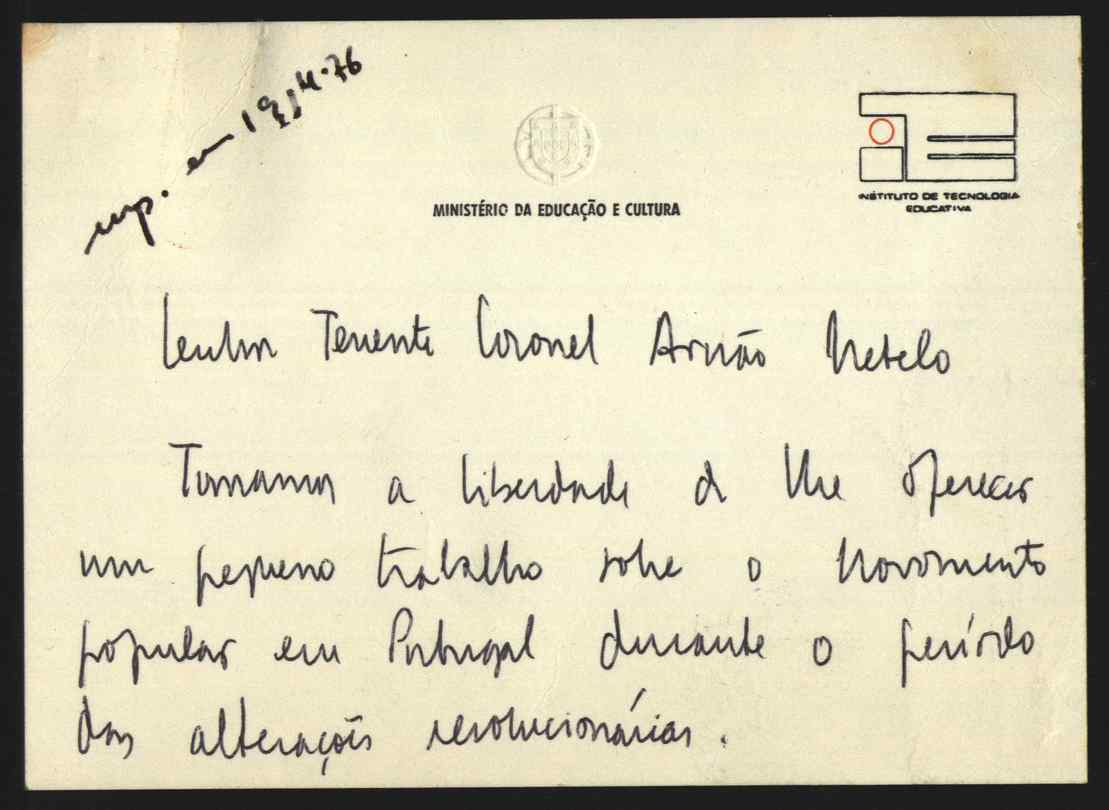 resp. em 19/4.76
MINISTÉRIO DA EDUCAÇÃO E CULTURA
INSTITUTO DE TECNOLOGIA
EDUCATIVA
Senhor Tenente Coronel Arnão Metelo
Tomamos a liberdade de lhe oferecer
um pequeno trabalho sobre o Movimento
popular em Portugal durante o período
das alterações revolucionárias.